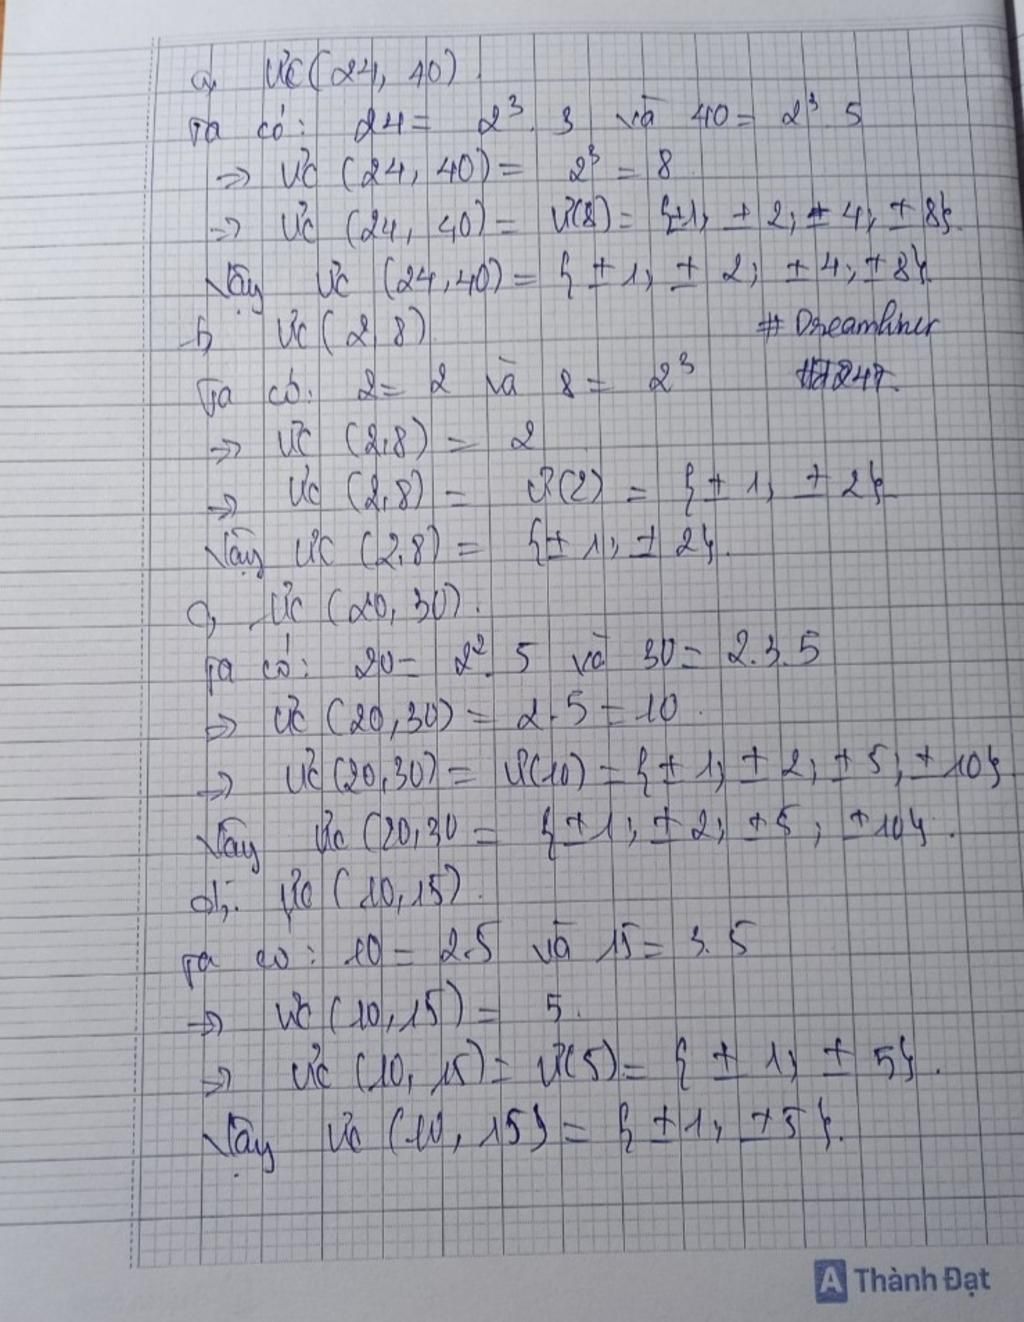 a, ƯC(24, 40)
Ta có: 24 = 2³. 3 và 40 = 2³ 5
=> ƯC (24, 40) = 2³ = 8
=> ƯC (24, 40) = Ư(8) = {±1; ± 2; ± 4; ± 8}.
Vậy ƯC (24,40) = { ± 1; ± 2; ± 4; ± 8}
b, ƯC(2,8)
# Dreamliner
Ta có: 2 = 2 và 8 = 2³
=> ƯC (2,8) = 2
=> ƯC (2,8) = Ư(2) = {± 1; ± 2}
Vậy ƯC (2,8) = {± 1; ± 2}.
c, ƯC (20, 30).
Ta có: 20 = 2². 5 và 30 = 2.3.5
=> ƯC (20,30) = 2.5 = 10.
=> ƯC(20,30) = Ư(10) = {± 1; ± 2; ± 5; ± 10}
Vậy ƯC (20,30 = {±1; ±2; ±5; ±10}.
d, ƯC (10,15).
Ta có: 10 = 2.5 và 15 = 3.5
=> ƯC (10,15) = 5.
=> ƯC (10, 15) = Ư(5) = { ± 1; ± 5}.
Vậy ƯC (10, 15) = { ±1; ±5}.
A Thành Đạt